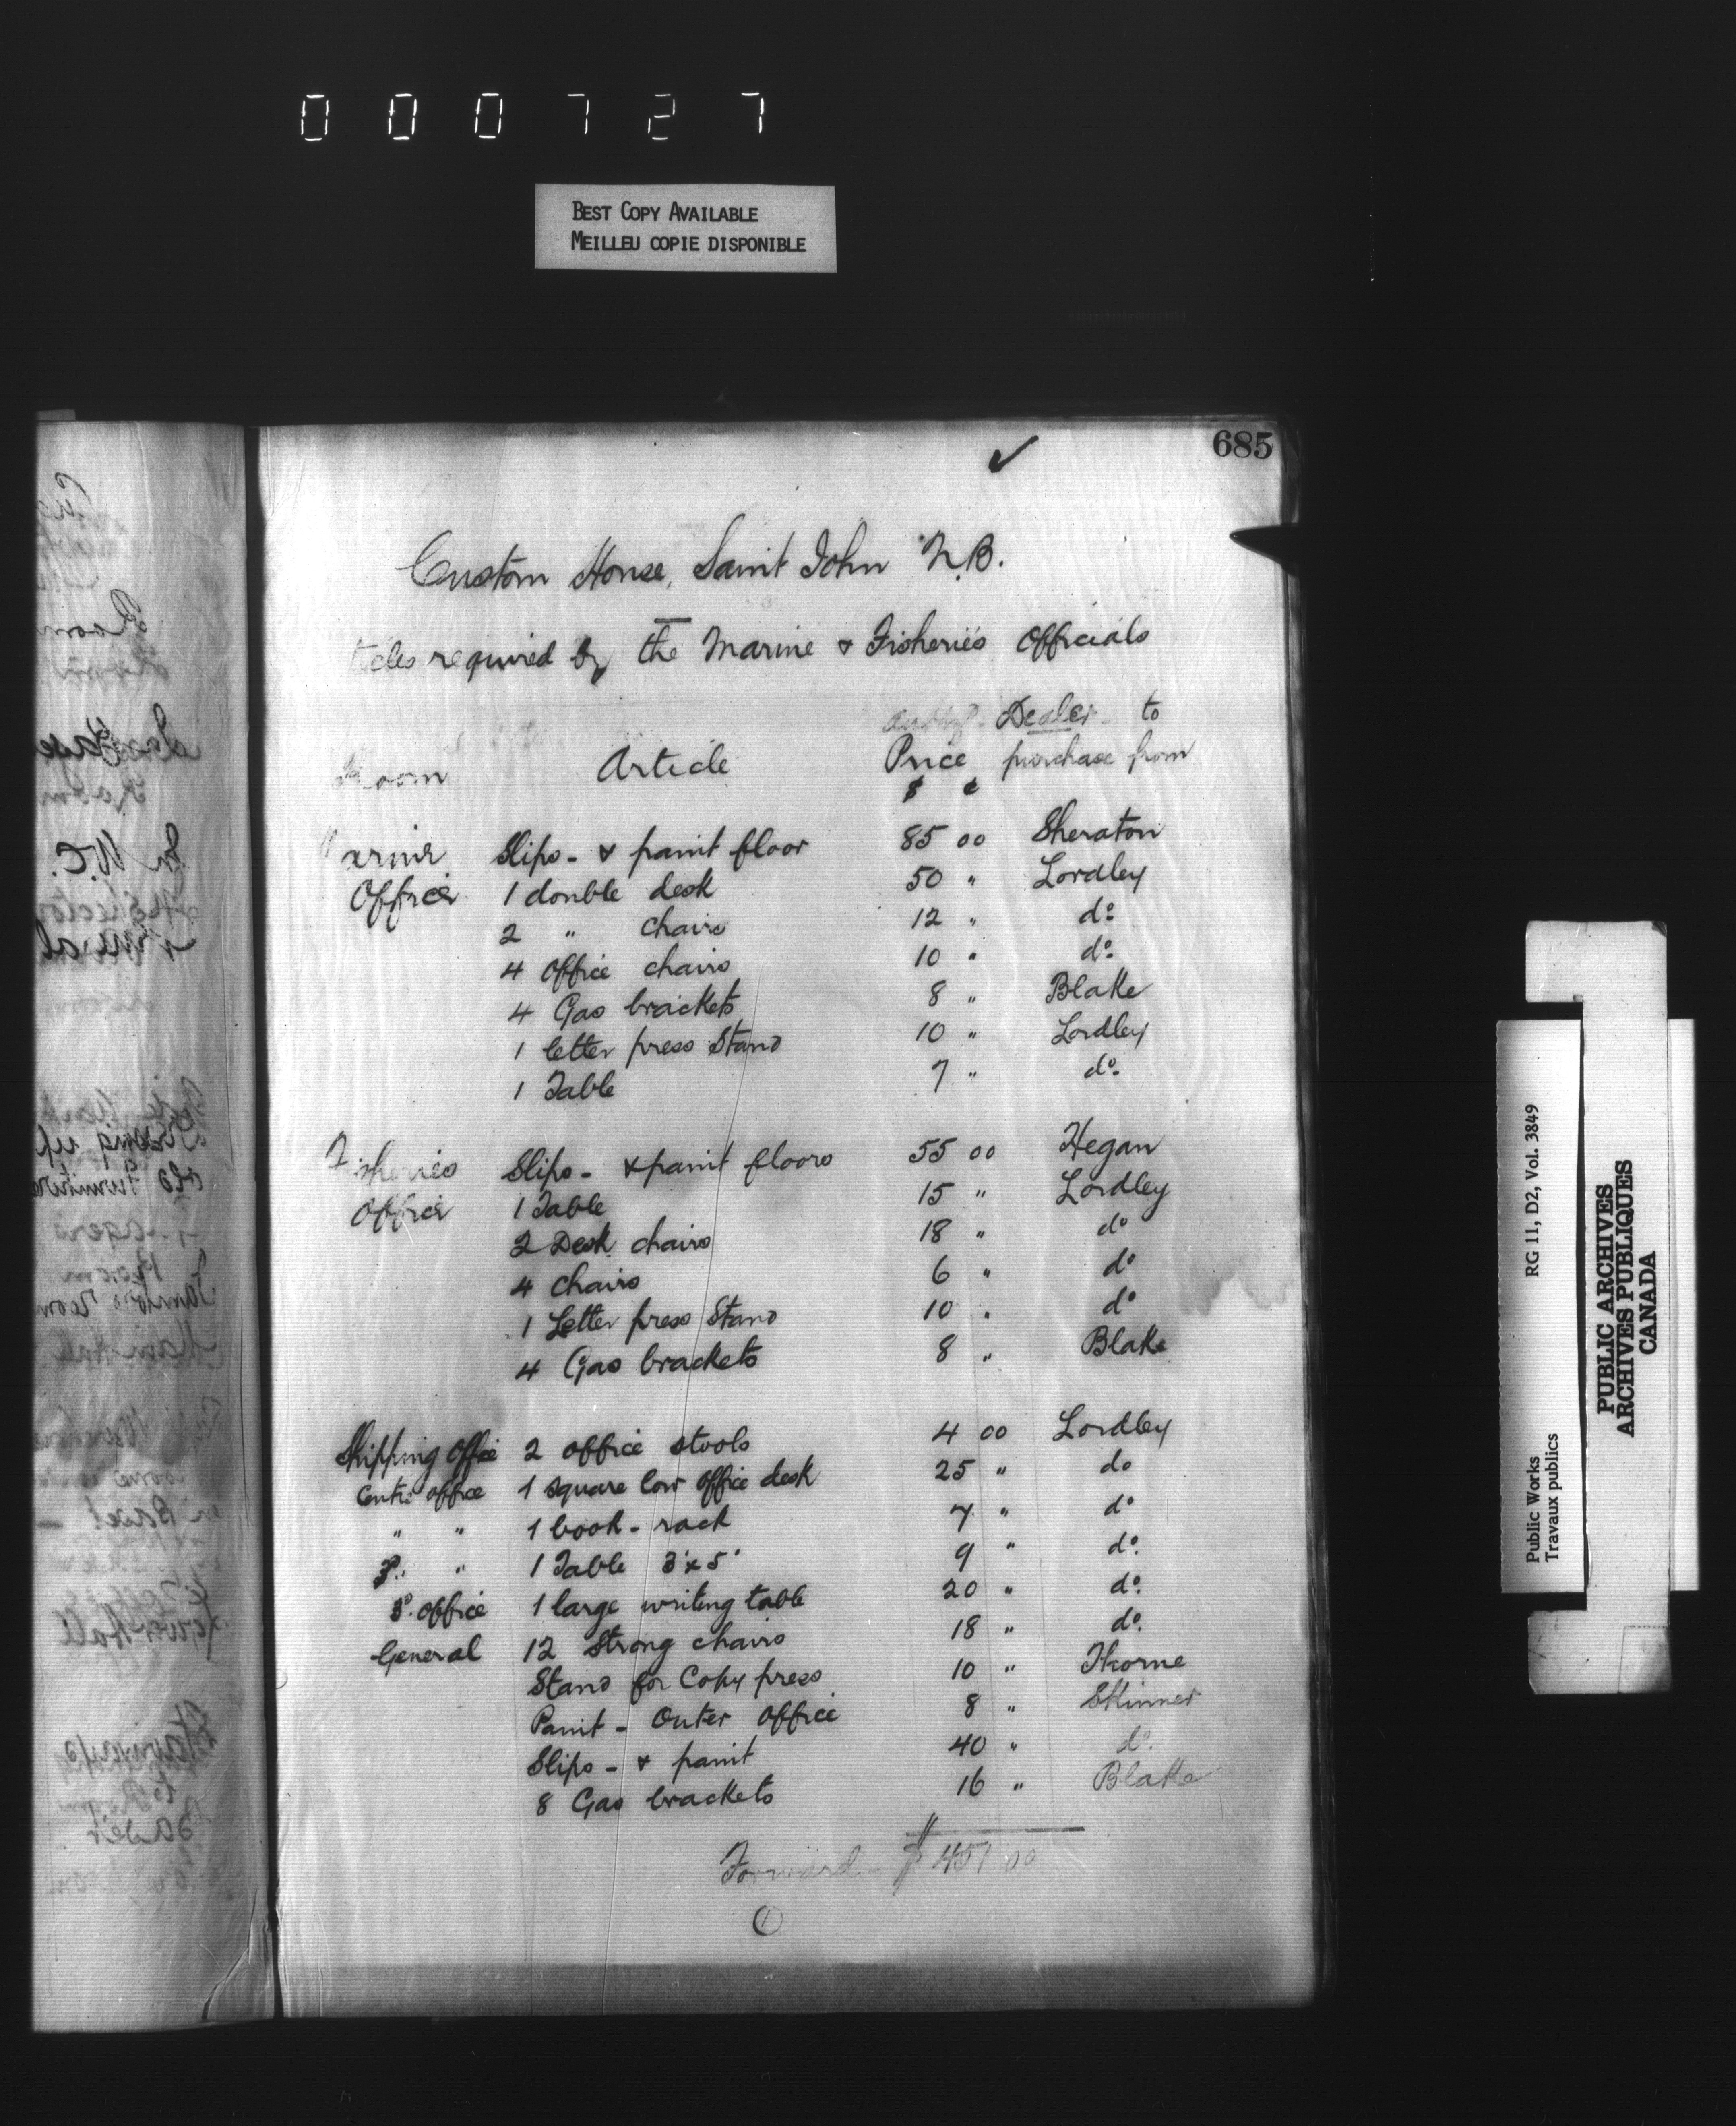 000727
BEST COPY AVAILABLE
MEILLEU COPIE DISPONIBLE
685
Custom House, Saint John N.B.
ticles required by the Marine & Fisheries Officials
Dealer to
Room Article Price purchase from
$ ¢
arine Slips - & paint floor 85 00 Sheraton
Office 1 double desk 50 " Lordley
2 " chairs 12 " do.
4 office chairs 10 " do.
4 Gas brackets 8 " Blake
1 letter press Stand 10 " Lordley
1 Table 7 " do.
Fisheries Slips - & paint floors 55 00 Hegan
Office 1 Table 15 " Lordley
2 Desk chairs 18 " do
4 chairs 6 " do
1 Letter press Stand 10 " do
4 Gas brackets 8 " Blake
Shipping Office 2 office stools 4 00 Lordley
Centre office 1 square low office desk 25 " do
" " 1 book-rack 7 " do
3d. " 1 Table 3' x 5' 9 " do.
3d. office 1 large writing table 20 " do.
General 12 Strong chairs 18 " do.
Stand for Copy press 10 " Thorne
Paint - Outer Office 8 " Skinner
Slips - & paint 40 " do.
8 Gas brackets 16 " Blake
Forward - $ 451 00
1
Public Works RG 11, D2, Vol. 3849
Travaux publics
PUBLIC ARCHIVES
ARCHIVES PUBLIQUES
CANADA